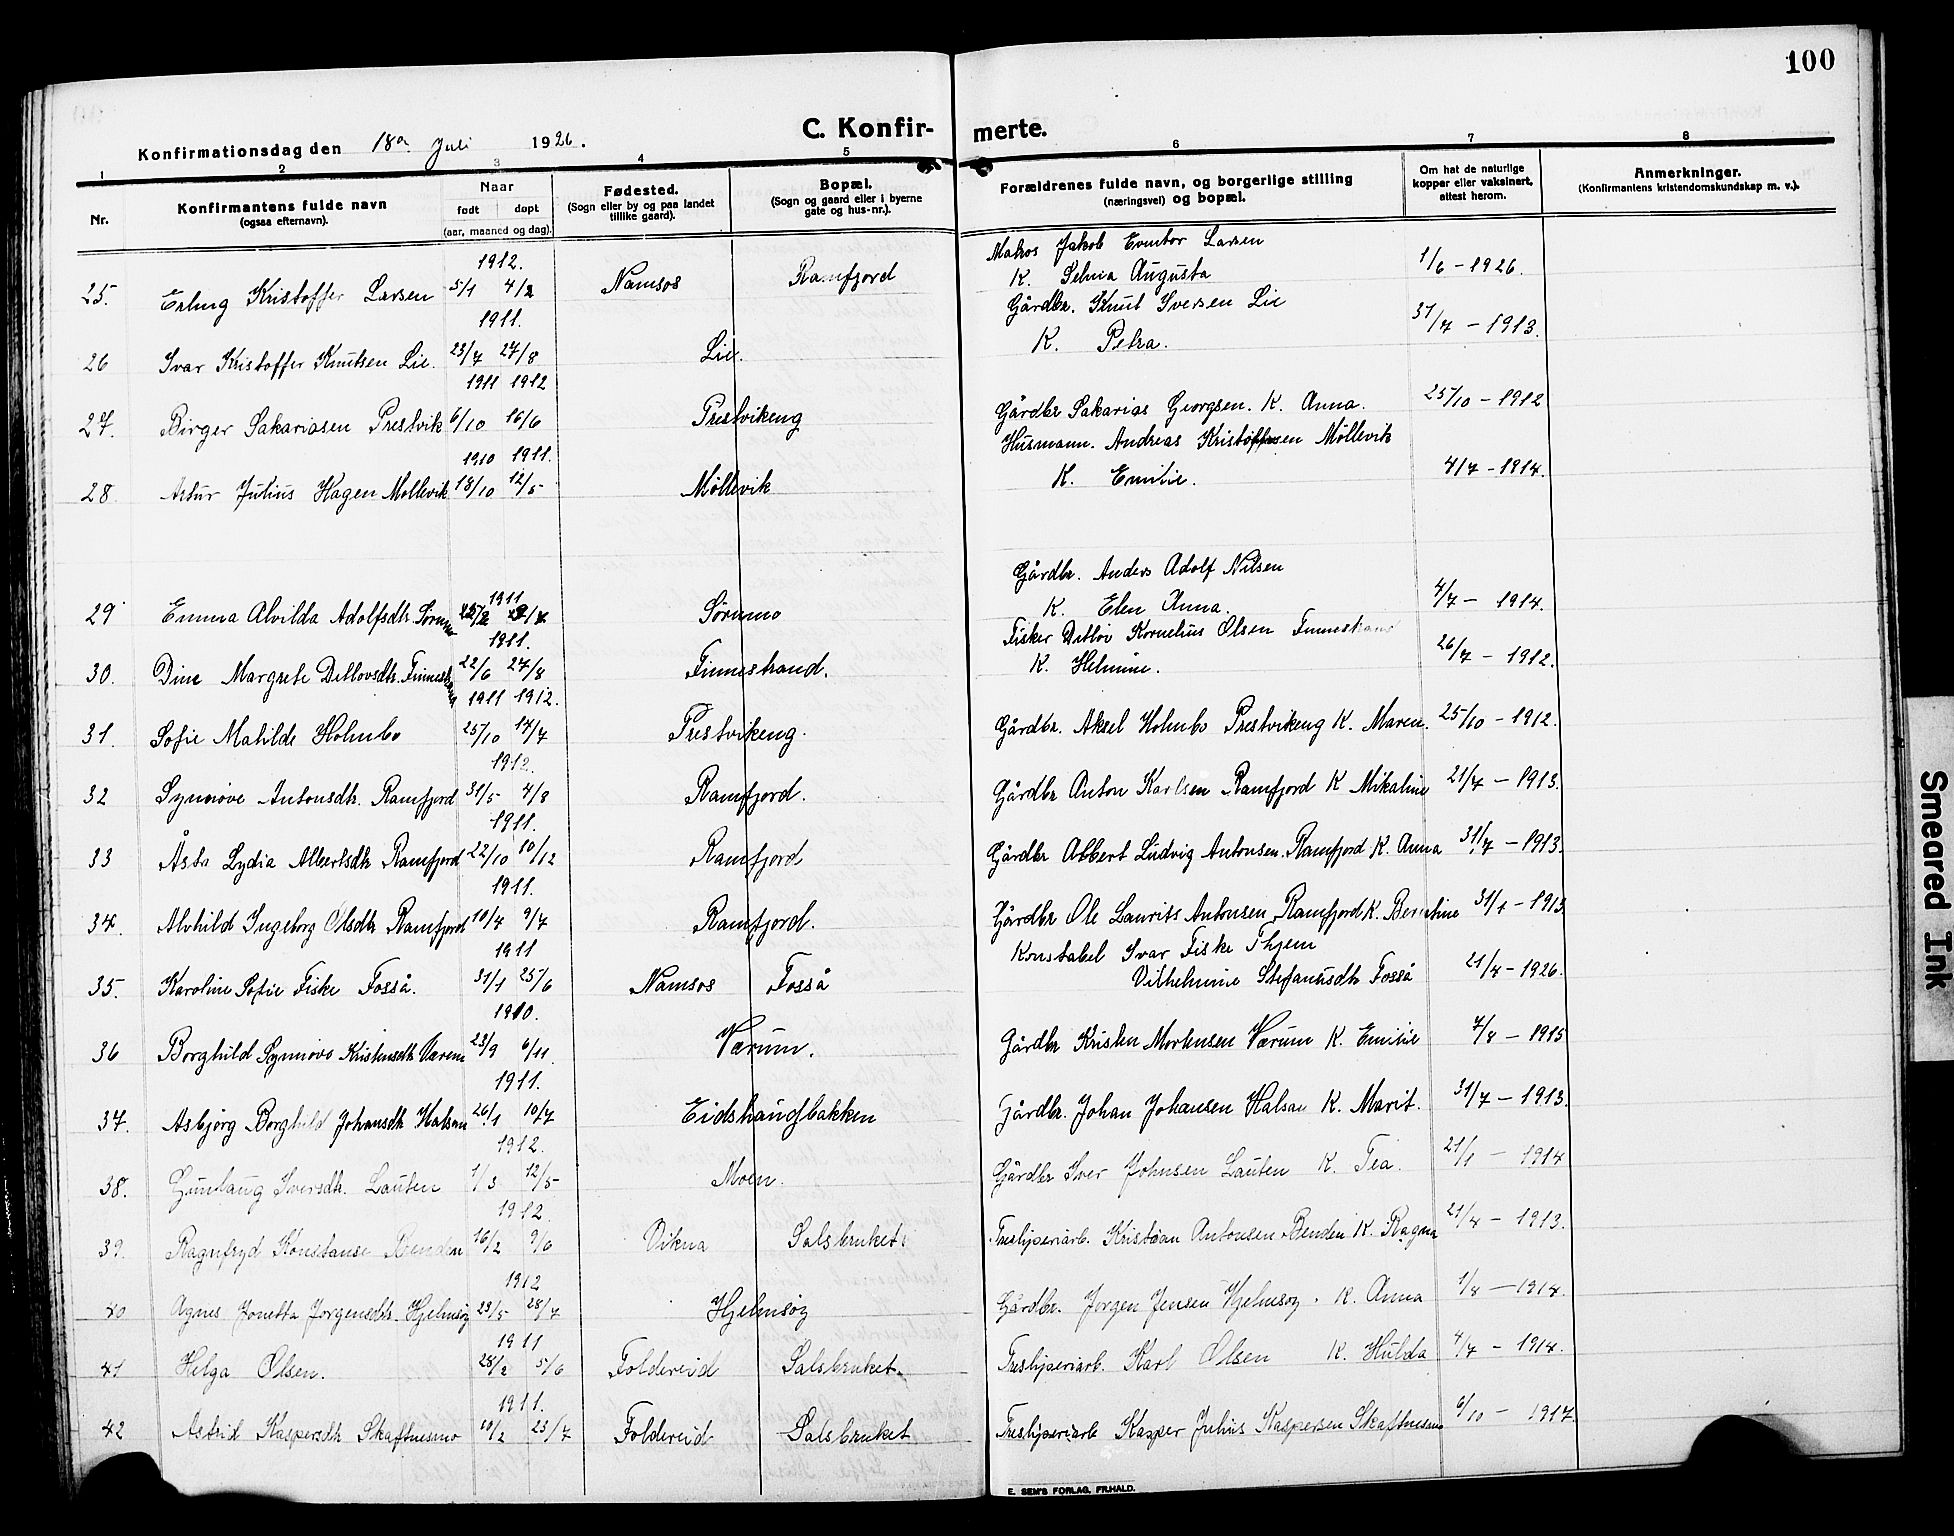 100
C. Konfirmerte.
Konfirmationsdag den 18de Juli 1926.
1 2 3 4 5 6 7 8
Nr.
Konfirmantens fulde navn
(ogsaa efternavn).
Naar
født døpt
(aar, maaned og dag).
Fødested.
(Sogn eller by og paa landet
tillike gaard).
Bopæl.
(Sogn og gaard eller i byerne
gate og hus-nr.).
Forældrenes fulde navn, og borgerlige stilling
(næringsvei) og bopæl.
Om hat de naturlige
kopper eller vaksinert,
attest herom.
Anmerkninger.
(Konfirmantens kristendomskundskap m. v.).
1912. Matros Jakob Larsen
25. Erling Kristoffer Larsen 5/1 4/2 Namsos Ramfjord K. Selma Augusta 1/6 - 1926.
1911. Gårdbr. Knut Iversen Lie
26 Ivar Kristoffer Knutsen Lie. 23/7 27/8 Lie. K. Petra. 31/7 - 1913.
1911 1912
27. Birger Sakariasen Prestvik 6/10 16/6 Prestvikeng Gårdbr Sakarias Georgsen. K. Anna. 25/10 - 1912
1910 1911. Husmann. Andreas Kristoffersen Møllevik
28. Artur Julius Hagen Møllevik 18/10 12/5 Møllevik K. Emilie. 4/7 - 1914.
1911 Gårdbr. Anders Adolf Nilsen
29 Emma Alvilda Adolfsdtr. Sørumo Sørumo K. Elen Anna. 4/7 - 1914.
1911. Fisker Detlov Kornelius Olsen Finnestrand
30. Dine Margrete Detlovsdtr. Finnestrand 22/6 27/8 Finnestrand. K. Helmine. 26/7 - 1912.
1911 1912.
31. Sofie Matilde Holmbo 25/10 14/7 Prestvikeng. Gårdbr. Aksel Holmbo Prestvikeng K. Maren. 25/10 - 1912.
1912.
32 Synnøve Antonsdtr. Ramfjord 31/5 4/8 Ramfjord. Gårdbr Anton Karlsen Ramfjord K Mikaline 21/7 - 1913.
1911.
33 Åsta Lydia Albertsdtr Ramfjord 22/10 10/12 Ramfjord Gårdbr Albert Ludvig Antonsen Ramfjord K. Anna 31/7 - 1913.
1911.
34. Alvhild Ingeborg Olsdtr Ramfjord 10/4 9/7 Ramfjord. Gårdbr Ole Laurits Antonsen Ramfjord K. Berntine 31/7 - 1913
1911 Konstabel Ivar Fiske Thjem
35. Karoline Sofie Fiske Fosså. 31/1 25/6 Namsos Fosså Vilhelmine Stefanusdtr Fosså 21/7 - 1926.
1910.
36 Borghild Synnøve Kristensdtr Værum 23/9 6/11. Værum. Gårdbr Kristen Mortensen Værum K. Emilie 7/8 - 1915
1911.
37. Asbjørg Borghild Johansdtr Halsan 26/1 10/7 Eidshaugbakken Gårdbr. Johan Johansen Halsan K. Marit. 31/7 - 1913.
1912.
38. Gunlaug Iversdtr. Lauten 1/3 12/5 Moen. Gårdbr Iver Johnsen Lauten K. Tea. 21/1 - 1914
1912.
39. Ragnfryd Konstanse Benden 16/2 9/6 Vikna Salsbruket Tresliperiarb. Kristian Antonsen Benden K. Ragna 21/7 - 1913.
1912
40 Agnes Jonetta Jørgensdtr. Hjelmsøy 23/5 28/7 Hjelmsøy Gårdbr. Jørgen Jensen Hjelmsøy. K. Anna 1/8 - 1914.
1911
41 Helga Olsen. 28/2 5/6 Foldereid Salsbruket. Tresliperiarb. Karl Olsen K. Hulda 4/7 - 1914.
1911.
42 Astrid Kaspersdtr Skaftnesmo 10/2 23/7 Foldereid Salsbruket Tresliperiarb Kasper Julius Kaspersen Skaftnesmo 6/10 - 1917.
E. SEM'S FORLAG, FR.HALD.
Smeared Ink